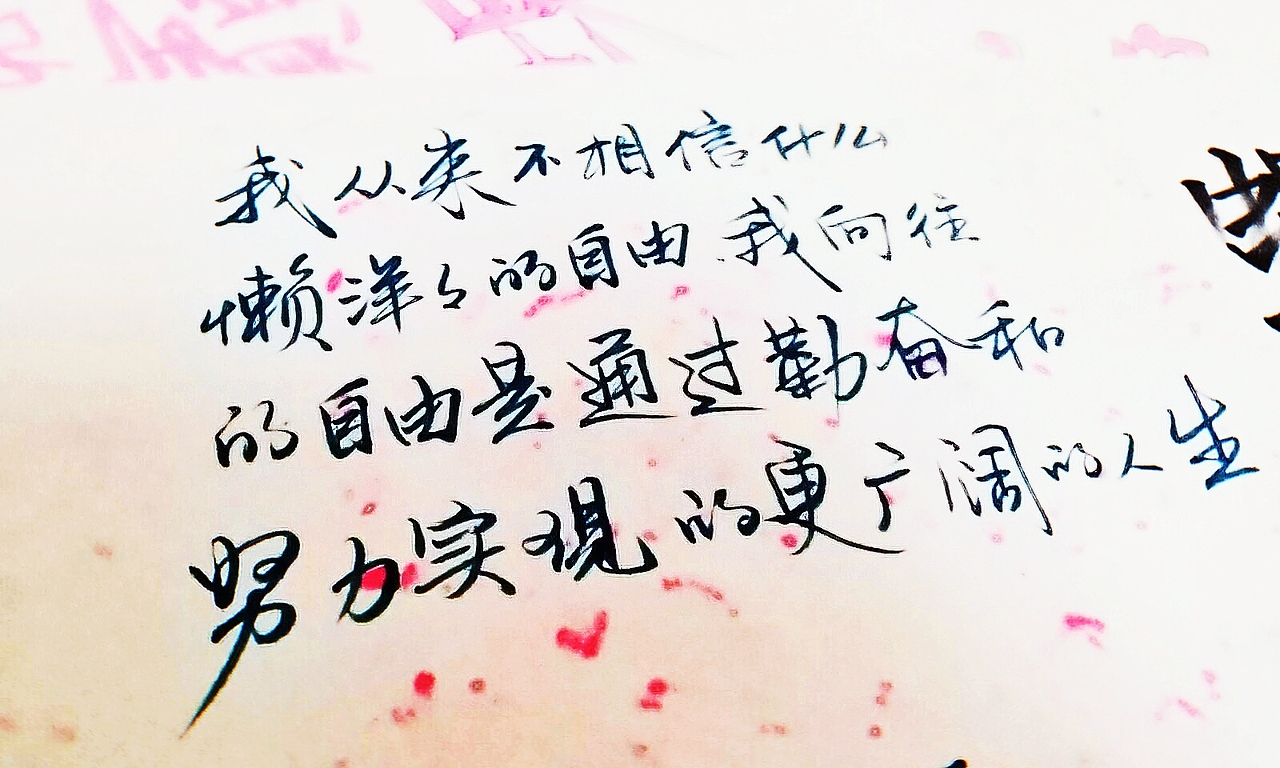 我从来不相信什么
懒洋々的自由.我向往
的自由是通过勤奋和
努力实现的更广阔的人生